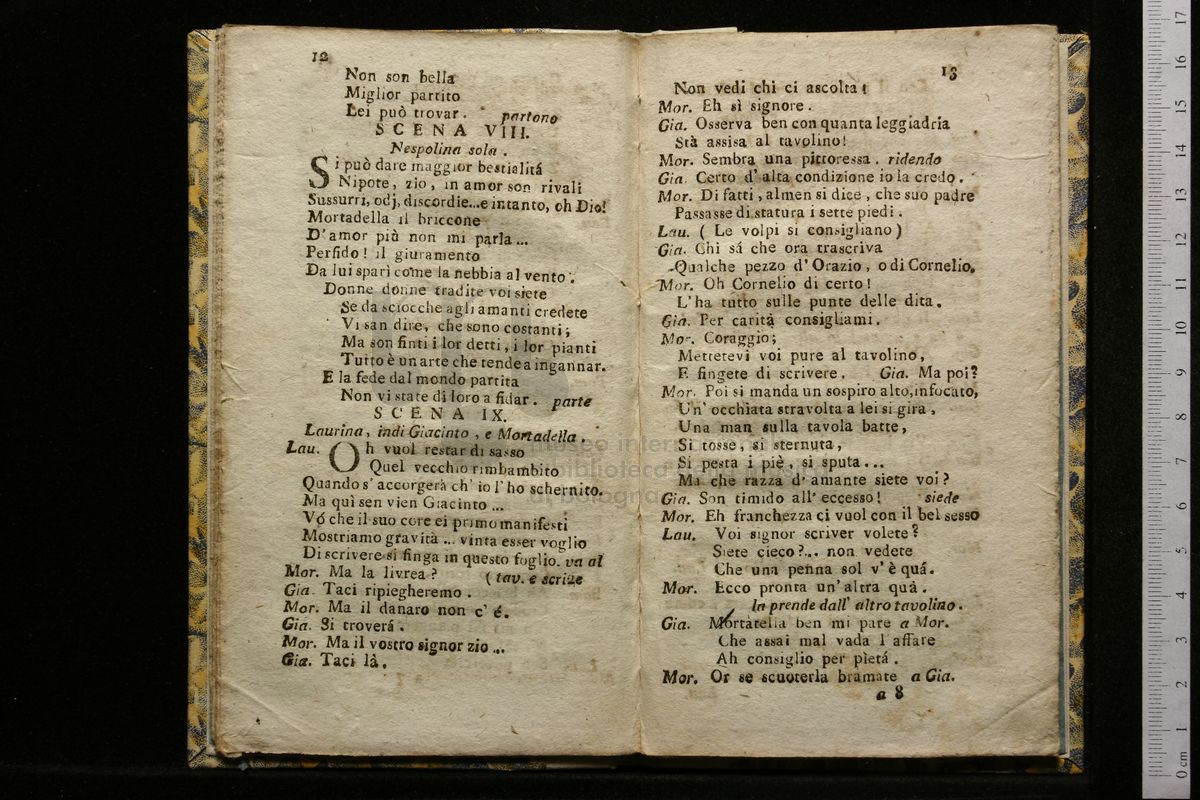 12
Non son bella
Miglior partito
Lei può trovar. partono
SCENA VIII.
Nespolina sola.
Si può dare maggior bestialitá
Nipote, zio, in amor son rivali
Sussurri, odj, discordie...e intanto, oh Dio!
Mortadella il briccone
D'amor più non mi parla...
Perfido! il giuramento
Da lui sparì come la nebbia al vento.
Donne donne tradite voi siete
Se da sciocche agli amanti credete
Vi san dire, che sono costanti;
Ma son finti i lor detti, i lor pianti
Tutto è un arte che tende a ingannar.
E la fede dal mondo partita
Non vi state di loro a fidar. parte
SCENA IX.
Laurina, indi Giacinto, e Mortadella.
Lau. Oh vuol restar di sasso
Quel vecchio rimbambito
Quando s'accorgerà ch'io l'ho schernito.
Ma quì sen vien Giacinto ...
Vó che il suo core ei primo manifesti
Mostriamo gravità ... vinta esser voglio
Di scrivere si finga in questo foglio. va al
Mor. Ma la livrea? (tav. e scrive
Gia. Taci ripiegheremo.
Mor. Ma il danaro non c'é.
Gia. Si troverá.
Mor. Ma il vostro signor zio ...
Gia. Taci là.
13
Non vedi chi ci ascolta!
Mor. Eh sì signore.
Gia. Osserva ben con quanta leggiadria
Stà assisa al tavolino!
Mor. Sembra una pittoressa. ridendo
Gia. Certo d'alta condizione io la credo.
Mor. Di fatti, almen si dice, che suo padre
Passasse di statura i sette piedi.
Lau. (Le volpi si consigliano)
Gia. Chi sá che ora trascriva
Qualche pezzo d'Orazio, o di Cornelio.
Mor. Oh Cornelio di certo!
L'ha tutto sulle punte delle dita.
Gia. Per carità consigliami.
Mor. Coraggio;
Mettetevi voi pure al tavolino,
E fingete di scrivere. Gia. Ma poi?
Mor. Poi si manda un sospiro alto, infocato,
Un'occhiata stravolta a lei si gira,
Una man sulla tavola batte,
Si tosse, si sternuta,
Si pesta i piè, si sputa...
Ma che razza d'amante siete voi?
Gia. Son timido all'eccesso! siede
Mor. Eh franchezza ci vuol con il bel sesso
Lau. Voi signor scriver volete?
Siete cieco?... non vedete
Che una penna sol v'è quá.
Mor. Ecco pronta un'altra quà.
la prende dall'altro tavolino.
Gia. Mortatella ben mi pare a Mor.
Che assai mal vada l affare
Ah consiglio per pietá.
Mor. Or se scuoterla bramate a Gia.
a 8
museo internazionale
biblioteca della musica
di bologna
0 cm 1 2 3 4 5 6 7 8 9 10 11 12 13 14 15 16 17